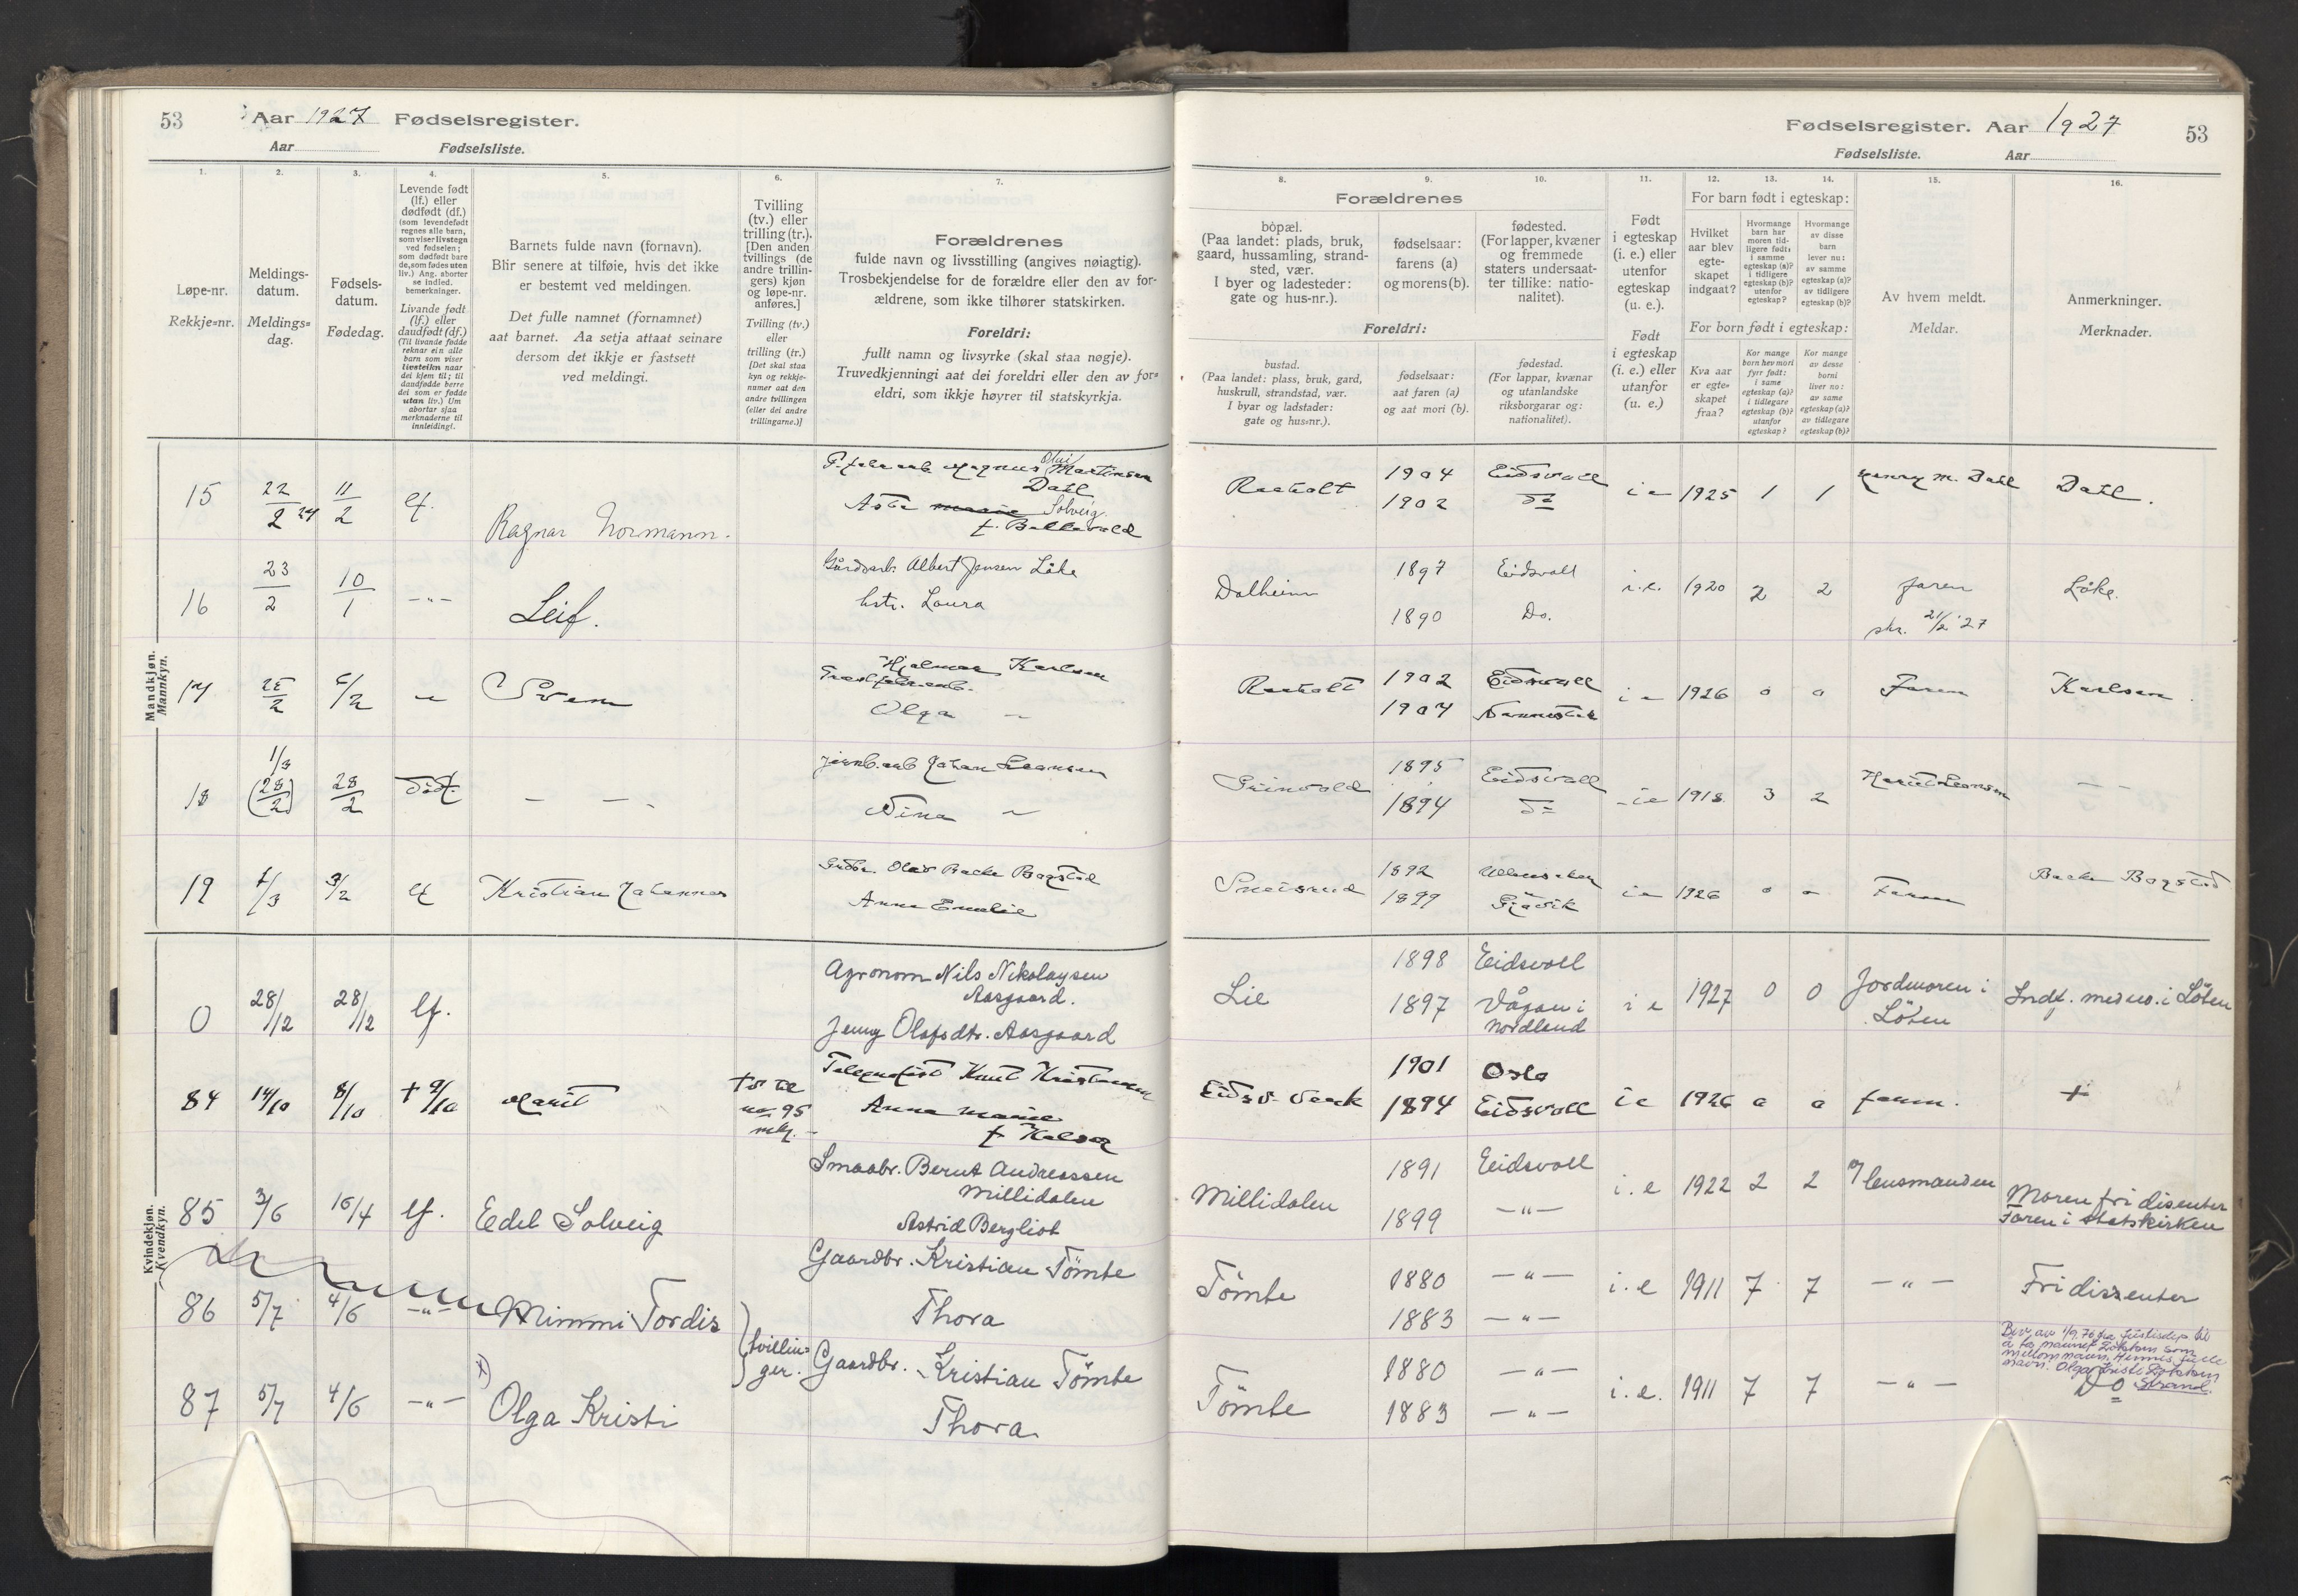 53
Aar 1927 Fødselsregister.
Aar Fødselsliste.
1.
2.
3.
4.
5.
6.
7.
Løpe-nr.
Rekkje=nr.
Meldings-
datum.
Meldings=
dag.
Fødsels-
datum.
Fødedag.
Levende født
(lf.) eller
dødfødt (df.)
(som levendefødt
regnes alle barn,
som viser livstegn
ved fødselen;
som dødfødt bare
de, som fødes uten
liv.) Ang. aborter
se indled.
bemerkninger.
Livande født
(lf.) eller
daudfødt (df.)
(Til livande fødde
reknar ein alle
barn som viser
livsteikn naar
dei kjem til; til
daudfødde berre
dei som er fødde
utan liv.) Um
abortar sjaa
merknaderne til
innleiding.
Barnets fulde navn (fornavn).
Blir senere at tilføie, hvis det ikke
er bestemt ved meldingen.
Det fulle namnet (fornamnet)
aat barnet. Aa setja attaat seinare
dersom det ikkje er fastsett
ved meldingi.
Tvilling
(tv.) eller
trilling (tr.).
[Den anden
tvillings (de
andre trillin-
gers) kjøn
og løpe-nr.
anføres.]
Tvilling (tv.)
eller
trilling (tr.)
[Det skal staa
kyn og rekkje-
numer aat den
andre tvillingen
(eller dei andre
trillingarne.)]
Forældrenes
fulde navn og livsstilling (angives nøiagtig).
Trosbekjendelse for de forældre eller den av for-
ældrene, som ikke tilhører statskirken.
Foreldri:
fullt namn og livsyrke (skal staa nøgje).
Truvedkjenningi aat dei foreldri eller den av for=
eldri, som ikkje høyrer til statskyrkja.
Mandkjøn.
Mannkyn.
15 22/2 27 11/2 lf. Ragnar Normann.
Magnus Martinsen
Dahl
Solveig
f.
16 23/2 10/1 -"- Leif.
Albert Jensen Løke
Laura
17 25/2 Svein
Hjalmar Karlsen
Olga
18 1/3 (28/2) 28/2 - - -
Johan
Nina
19 lf Kristian Johannes
Olav Bakke Bogstad
Anna Emelie
Kvindekjøn.
Kvendkyn.
0 28/12 28/12 lf.
Agronom Nils Nikolaysen
Aasgaard.
Jenny Olafsdtr. Aasgaard
84 14/10 8/10 + 9/10 Marit
no 95
Telegrafist Knut
Anna Marie
f.
85 3/6 16/4 lf. Edel Solveig
Smaabr. Bernt Andreassen
Millidalen
Astrid Bergliot
86 5/7 4/6 -"- Mimmi Tordis
tvillin=
ger.
Gaardbr. Kristian Tömte
Thora
87 5/7 4/6 -"- x) Olga Kristi
Gaardbr. Kristian Tömte
Thora
Fødselsregister. Aar 1927
53
Fødselsliste. Aar
8.
9.
10.
11.
12.
13.
14.
15.
16.
Forældrenes
bopæl.
(Paa landet: plads, bruk,
gaard, hussamling, strand-
sted, vær.
I byer og ladesteder:
gate og hus-nr.).
fødselsaar:
farens (a)
og morens (b).
fødested.
(For lapper, kvæner
og fremmede
staters undersaat-
ter tillike: natio-
nalitet).
Foreldri:
bustad.
(Paa landet: plass, bruk, gard,
huskrull, strandstad, vær.
I byar og ladstader:
gate og hus=nr.).
fødselsaar:
aat faren (a)
og aat mori (b).
fødestad.
(For lappar, kvænar
og utanlandske
riksborgarar og:
nationalitet).
Født
i egteskap
(i. e.) eller
utenfor
egteskap
(u. e.).
Født
i egteskap
(i. e.) eller
utanfor
(u. e.)
For barn født i egteskap:
Hvilket
aar blev
egte-
skapet
indgaat?
Hvormange
barn har
moren tid-
ligere født:
i samme
egteskap (a)?
i tidligere
egteskap (b)?
utenfor
egteskap?
Hvormange
av disse
barn
lever nu:
av samme
egteskap (a)?
av tidligere
egteskap (b)?
For born født i egteskap:
Kva aar
er egte=
skapet
fraa?
Kor mange
born hev mori
fyrr født:
i same
egteskap (a)?
i tidlegare
egteskap (b)?
utanfor
egteskap?
Kor mange
av desse
borni
liver no:
av same
egteskap (a)?
av tidlegare
egteskap (b)?
Av hvem meldt.
Meldar.
Anmerkninger.
Merknader.
Raaholt 1904 Eidsvoll i e 1925 1 1 M. Dahl Dahl.
1902 do
Dalheim 1897 Eidsvoll i.e. 1920 2 2 faren Løke.
1890 Do.
21/2 27
Raaholt 1902 Eidsvoll i e 1926 0 0 Faren Karlsen
1907 Nannestad
1895 Eidsvoll i e 1918 3 2
1894 do
1892 Ullensaker i e 1926 0 0 Faren Bakke Bogstad
1899 Gjøvik
Lie 1898 Eidsvoll i e 1927 0 0 Jordmoren i
Löten
1897 Vågan i
Nordland
Eidsv. Verk 1901 Oslo i e 1926 0 0 faren. +
1894 Eidsvoll
Millidalen 1891 Eidsvoll i.e 1922 2 2 lensmanden
1899 -"-
Moren fri disenter
Faren i statskirken
Tömte 1880 -"- i.e 1911 7 7 -"- Fridissenter
1883 -"-
Tömte 1880 -"- i.e. 1911 7 7 -"- Do
1883 -"-
mellomnavn. Hennes fulle
navn: Olga Kristi
Strand.